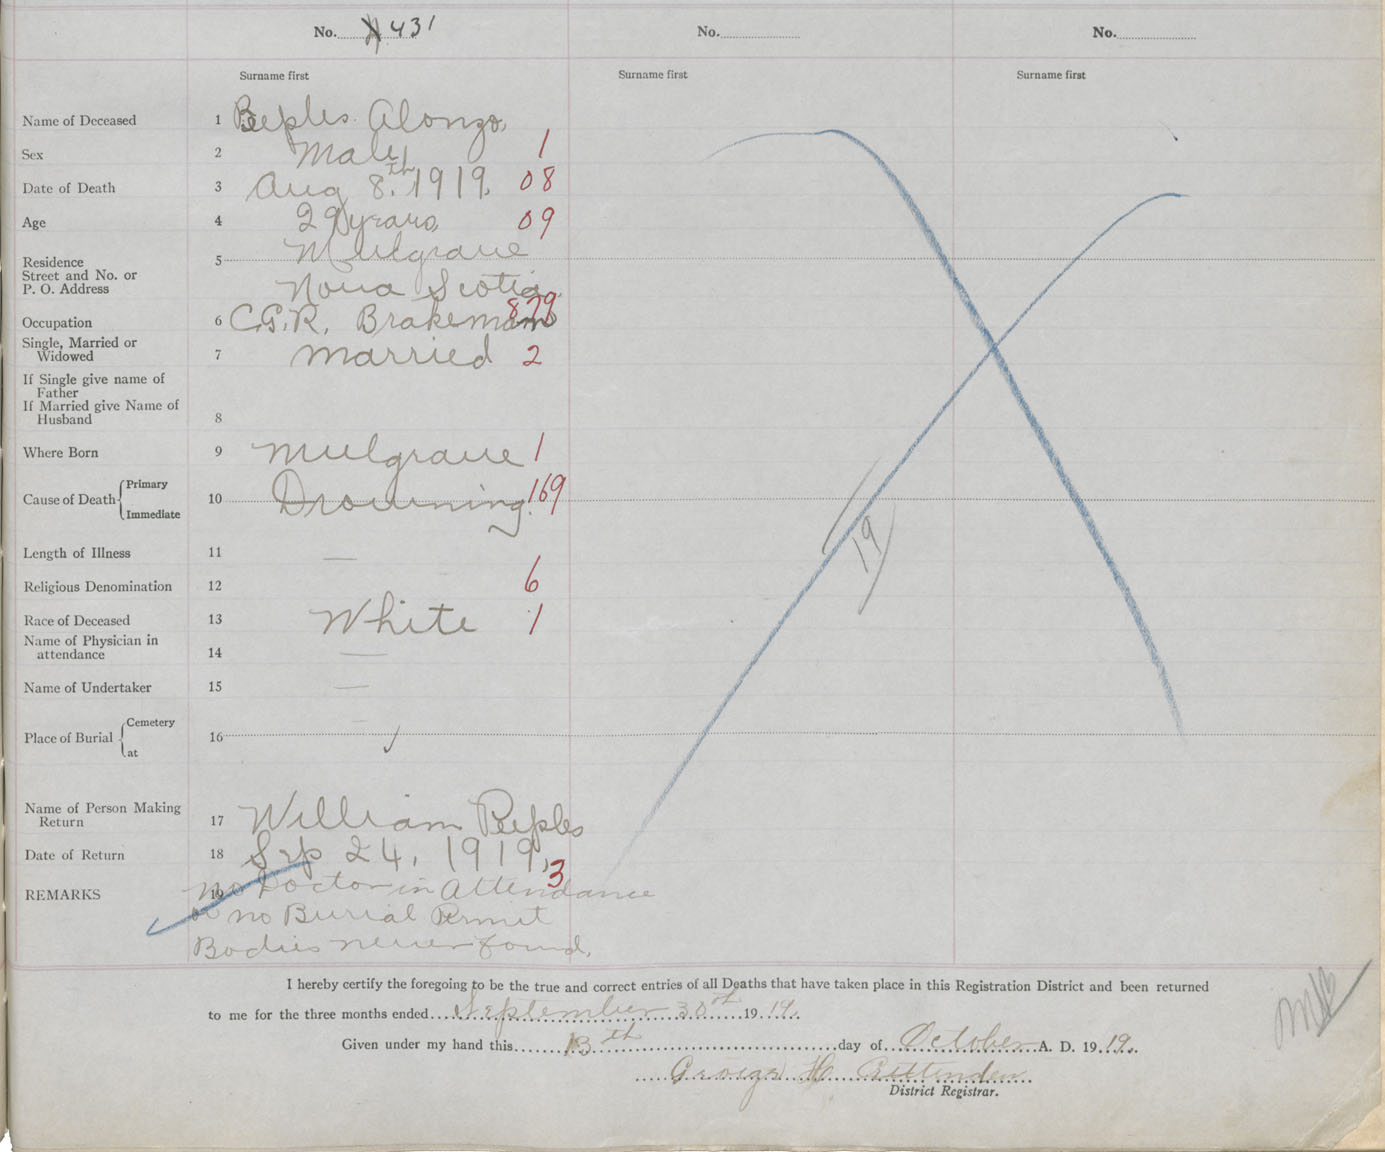 No. 431 No. No.
Surname first Surname first Surname first
Name of Deceased 1 Peeples Alonzo,
Sex 2 Male 1
Date of Death 3 Aug 8th. 1919. 08
Age 4 29 years, 09
Residence 5 Mulgrave
Street and No. or
P. O. Address Nova Scotia.
Occupation 6 C.G.R. Brakeman 879
Single, Married or
Widowed 7 Married 2
If Single give name of
Father
If Married give Name of
Husband 8
Where Born 9 Mulgrave 1
Cause of Death Primary
Immediate 10 Drowning. 169
Length of Illness 11 —
Religious Denomination 12 6
Race of Deceased 13 White 1
Name of Physician in
attendance 14 —
Name of Undertaker 15 —
Place of Burial Cemetery
at 16 —
19
Name of Person Making
Return 17 William Peeples
Date of Return 18 Sep 24, 1919, 3
REMARKS 19 No Doctor in Attendance
or no Burial Permit
Bodies never found.
I hereby certify the foregoing to be the true and correct entries of all Deaths that have taken place in this Registration District and been returned
to me for the three months ended September 30th 1919.
Given under my hand this 13th day of October A. D. 1919.
George H
District Registrar.